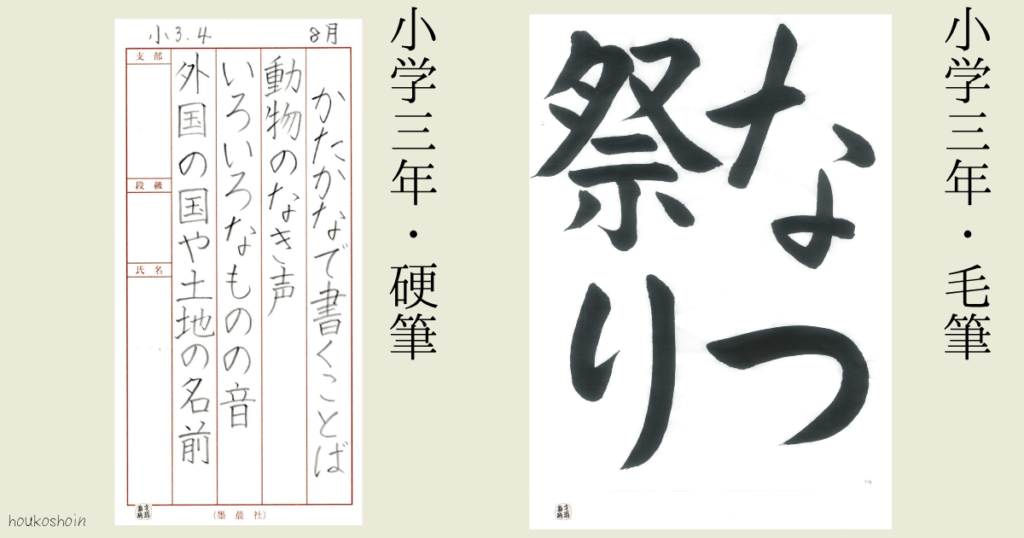 小学三年・毛筆
なつ
祭り
小学三年・硬筆
小3.4
8月
かたかなで書くことば
動物のなき声
いろいろなものの音
外国の国や土地の名前
支部
段級
氏名
(墨晨社)
houkoshoin